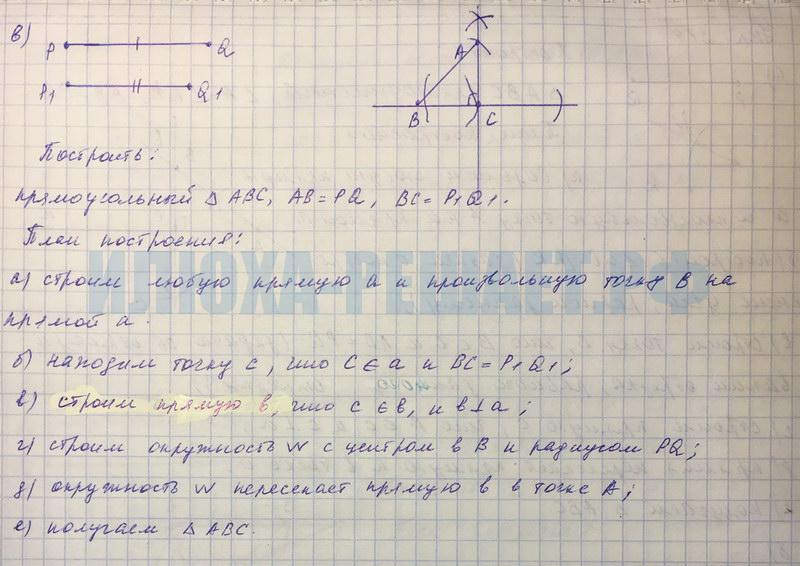 в)
P Q
P1 Q1
A
B C
Построить:
прямоугольный △ ABC, AB = PQ, BC = P1Q1.
План построения:
а) строим любую прямую a и произвольную точку B на
прямой a.
б) находим точку C, что C ∈ a и BC = P1Q1;
в) строим прямую в, что C ∈ в, и в ⊥ a;
г) строим окружность w с центром в B и радиусом PQ;
д) окружность w пересекает прямую в в точке A;
е) получаем △ ABC.
ИЛЮХА-РЕШАЕТ.РФ